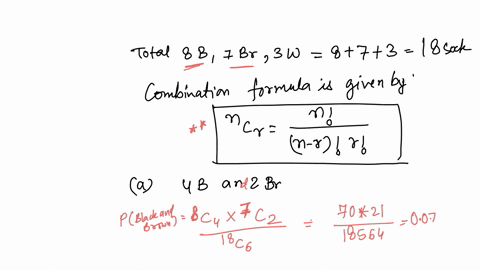 Total 8B, 7Br, 3W = 8+7+3 = 18 Sock
Combination formula is given by:
** nCr = n! / (n-r)! r!
(a) 4B and 2Br
P(Black and Brown) = 8C4 × 7C2 / 18C6 = 70*21 / 18564 = 0.07